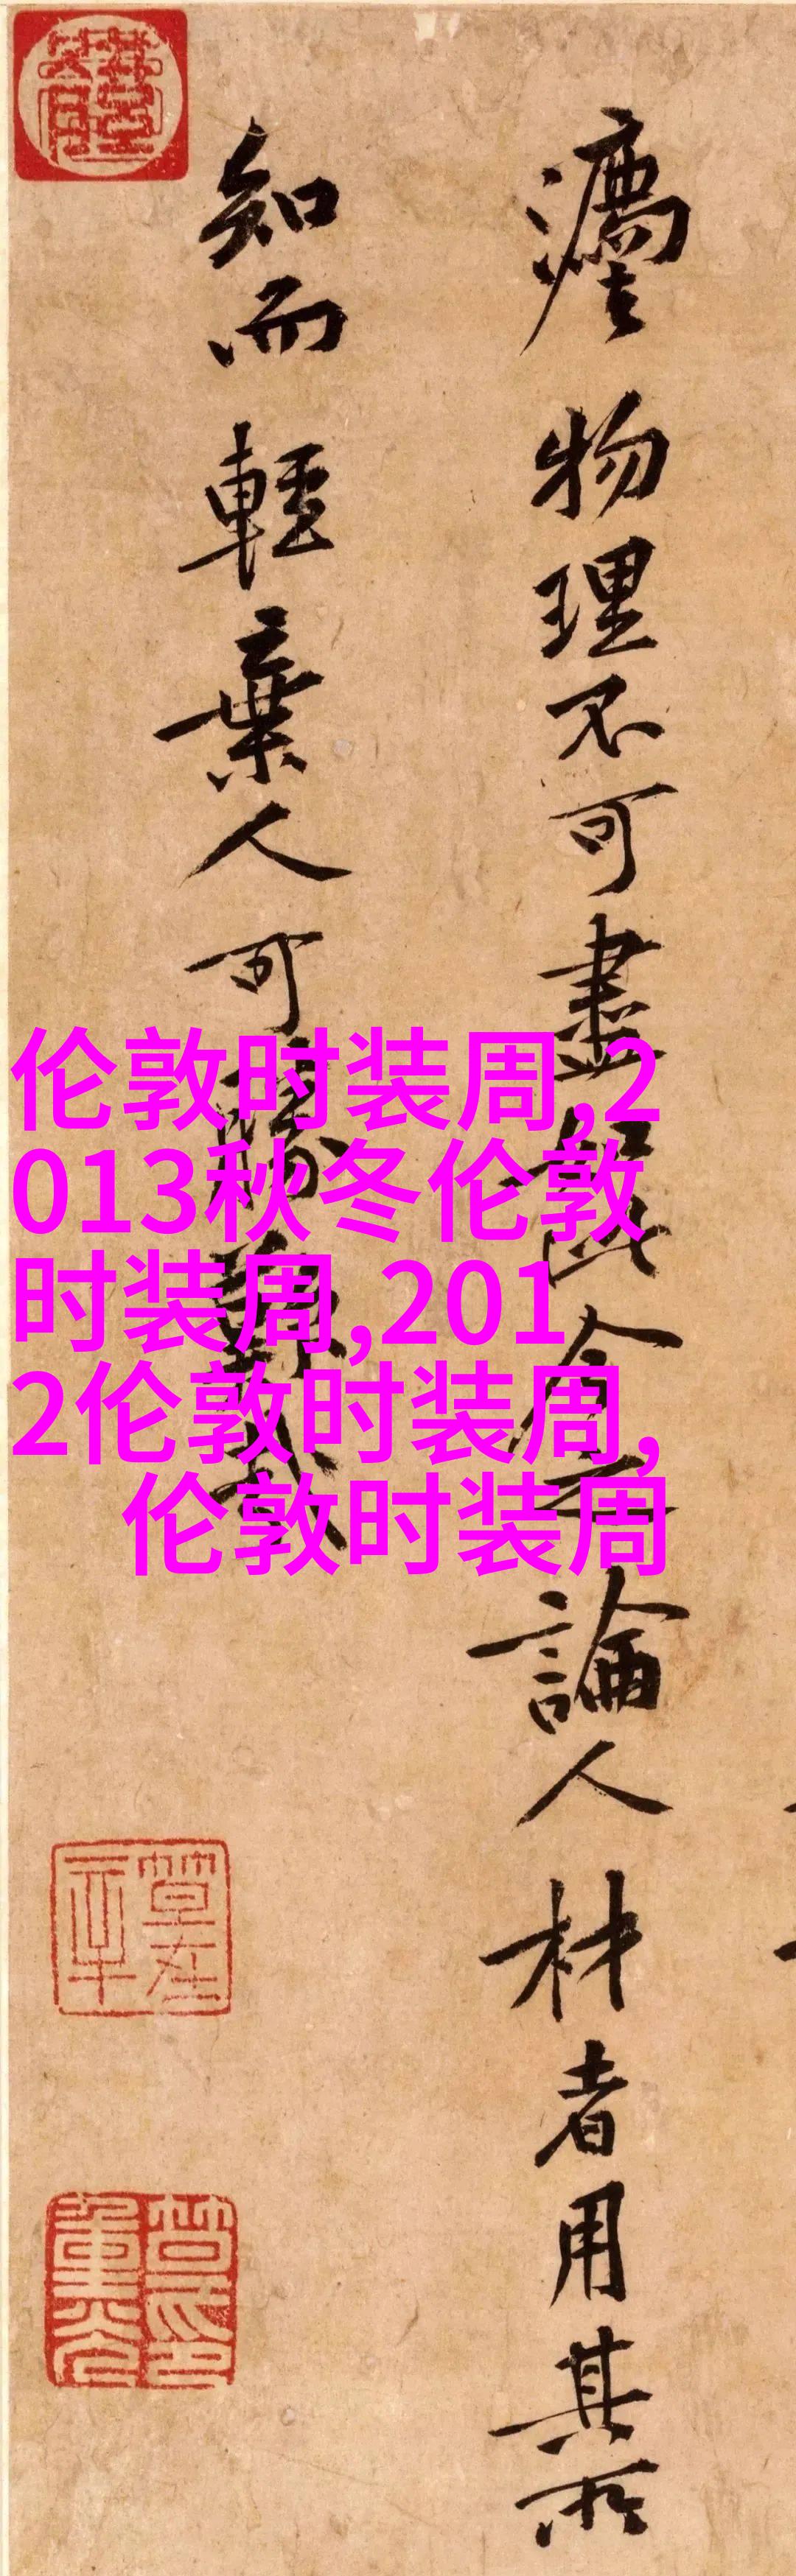 物理不可盡如此余之論人材者用其所
知而輕棄人可勝歎哉
伦敦时装周,2
013秋冬伦敦
时装周,201
2伦敦时装周,
伦敦时装周